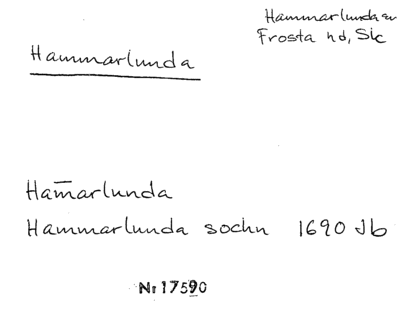 Hammarlunda sn
Frosta hd, Sk
Hammarlunda
Ham̅arlunda
Hammarlunda sochn 1690 Jb
Nr 17590